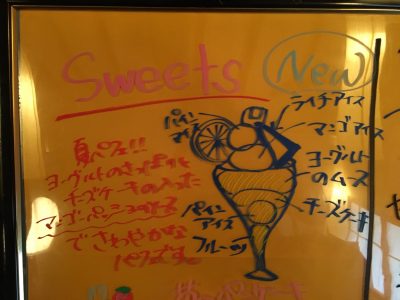 Sweets
New
夏パフェ!!
ヨーグルトのさっぱりと
チーズケーキの入った
マンゴーパッションのソース
でさわやかな
パフェです。
パイン
ライチアイス
マンゴアイス
ヨーグルト
のムース
チーズケーキ
パイン
アイス
フルーツ